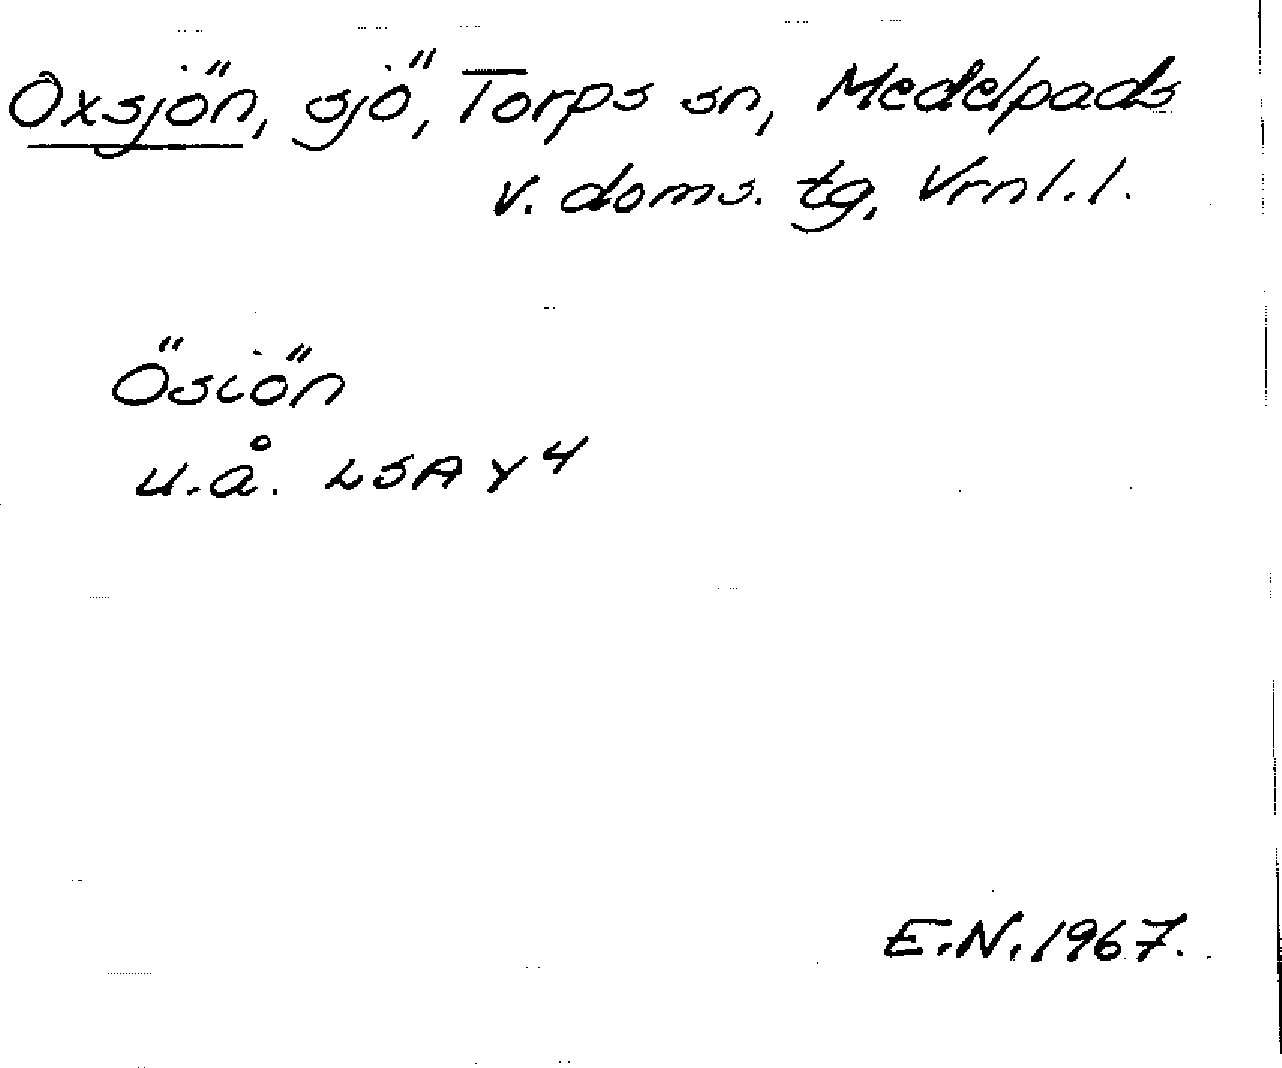 Oxsjön, sjö, Torps sn, Medelpads
v. doms. tg, Vrnl.l.
Ösiön
u.å. LSA Y 4
E.N. 1967.